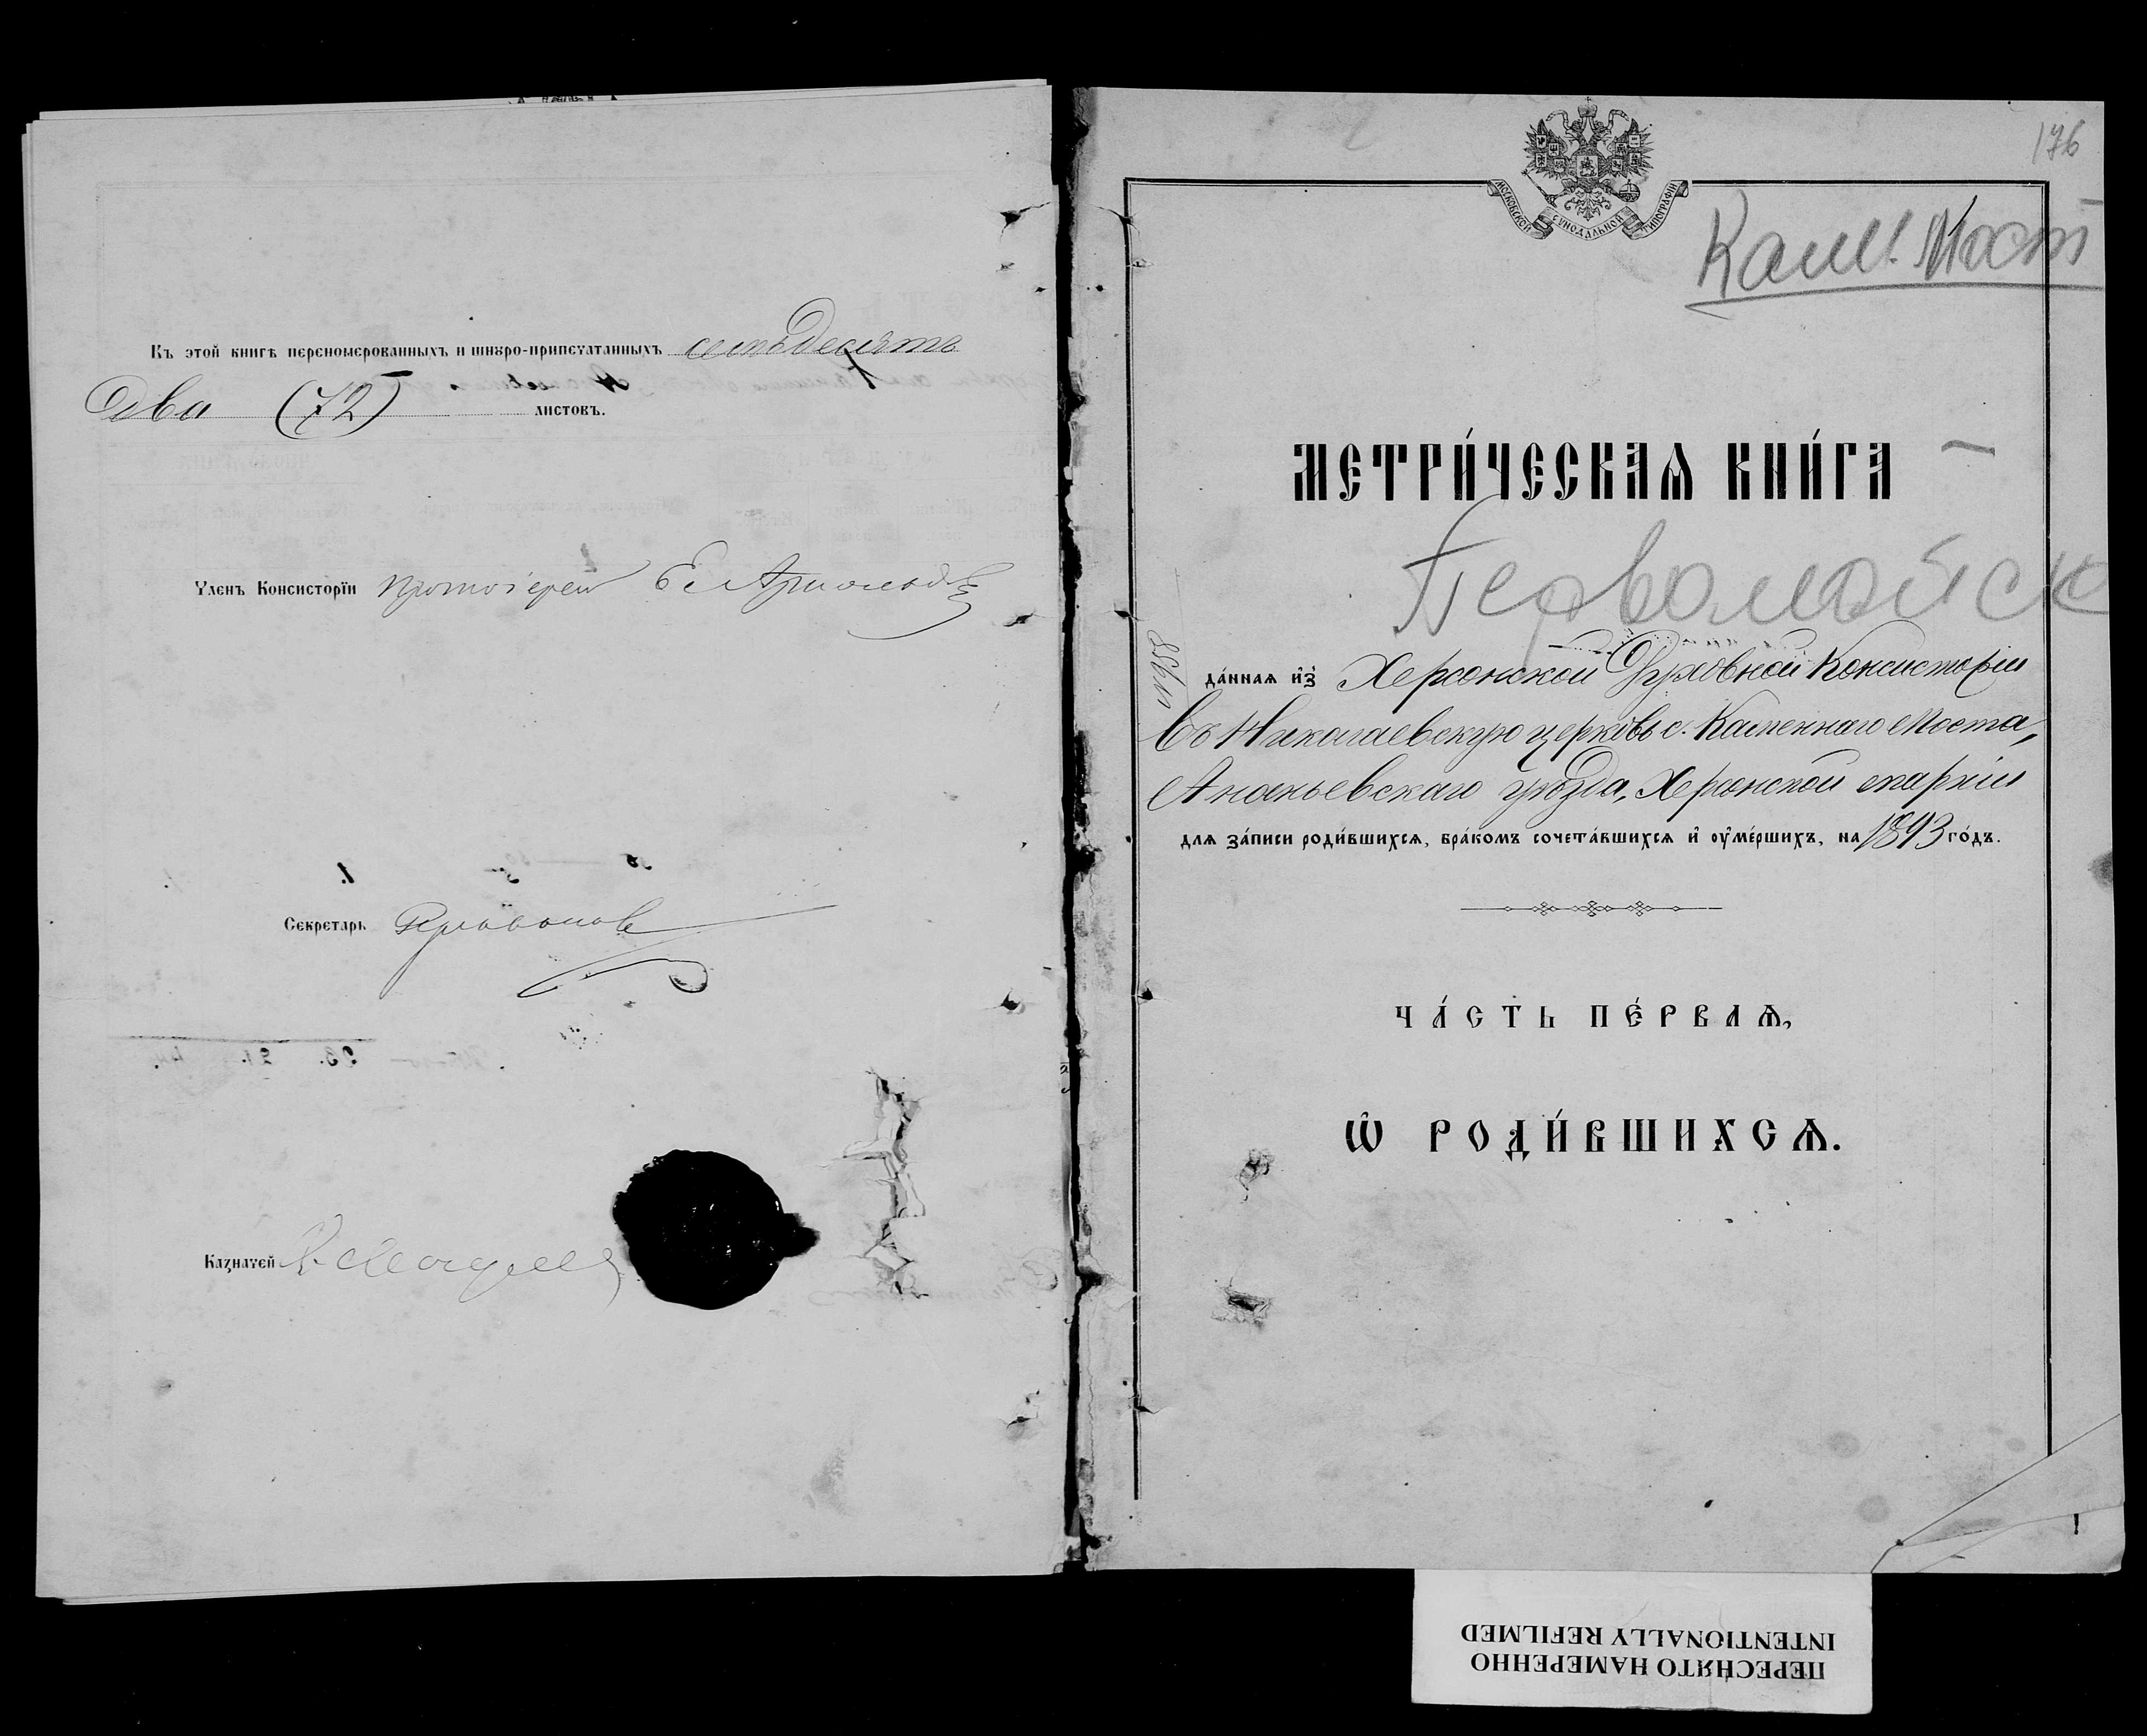 Къ этой книгѣ переномерованныхъ и шнуро-припечатанныхъ семьдесятъ
два (72) листовъ.
Членъ Консисторіи протоіерей
Секретарь
Казначей
176
МОСКОВСКОЙ СѴНОДАЛЬНОЙ ТИПОГРАФІИ
Кам. Мост
МЕТРИ́ЧЕСКАѦ КНИ́ГА
Первомайск
да́ннаѧ и҆з̾ Херсонской Духовной Консисторіи
въ Николаевскую церковь с. Каменнаго Моста,
Ананьевскаго уѣзда, Херсонской епархіи
для за́писи роди́вшихсѧ, бра́комъ сочета́вшихсѧ и҆ ᲂу҆ме́ршихъ, на 1893 го́дъ.
ЧА́СТЬ ПЕ́РВАѦ,
Ѡ҆ РОДИ́ВШИХСѦ.
1
ПЕРЕСНЯТО НАМЕРЕННО
INTENTIONALLY REFILMED